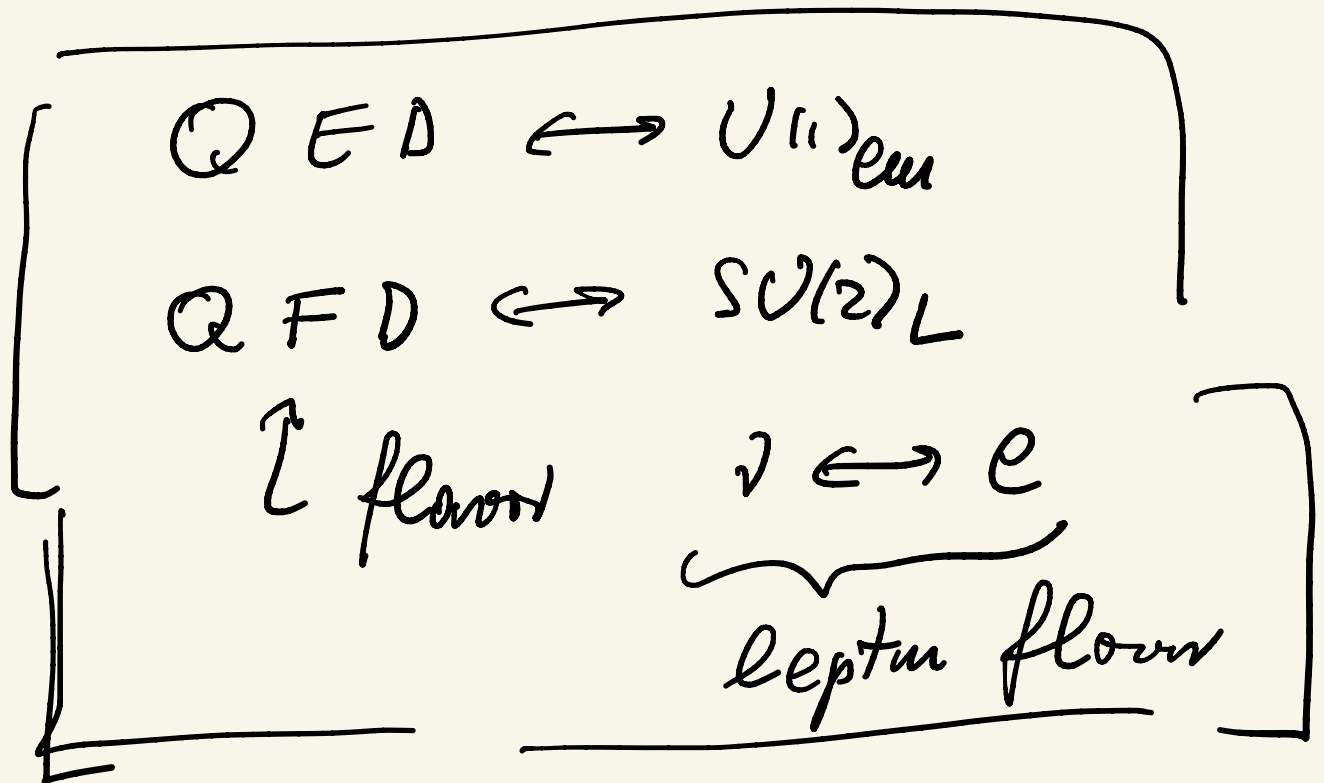 QED ↔ U(1)em
QFD ↔ SU(2)L
↑ flavor ν ↔ e
lepton flavor